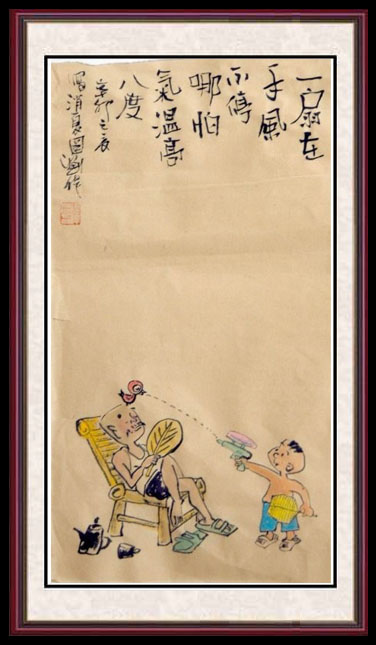 一扇在
手風
不停
哪怕
氣溫高
八度
辛卯之夏
寫消夏圖 作